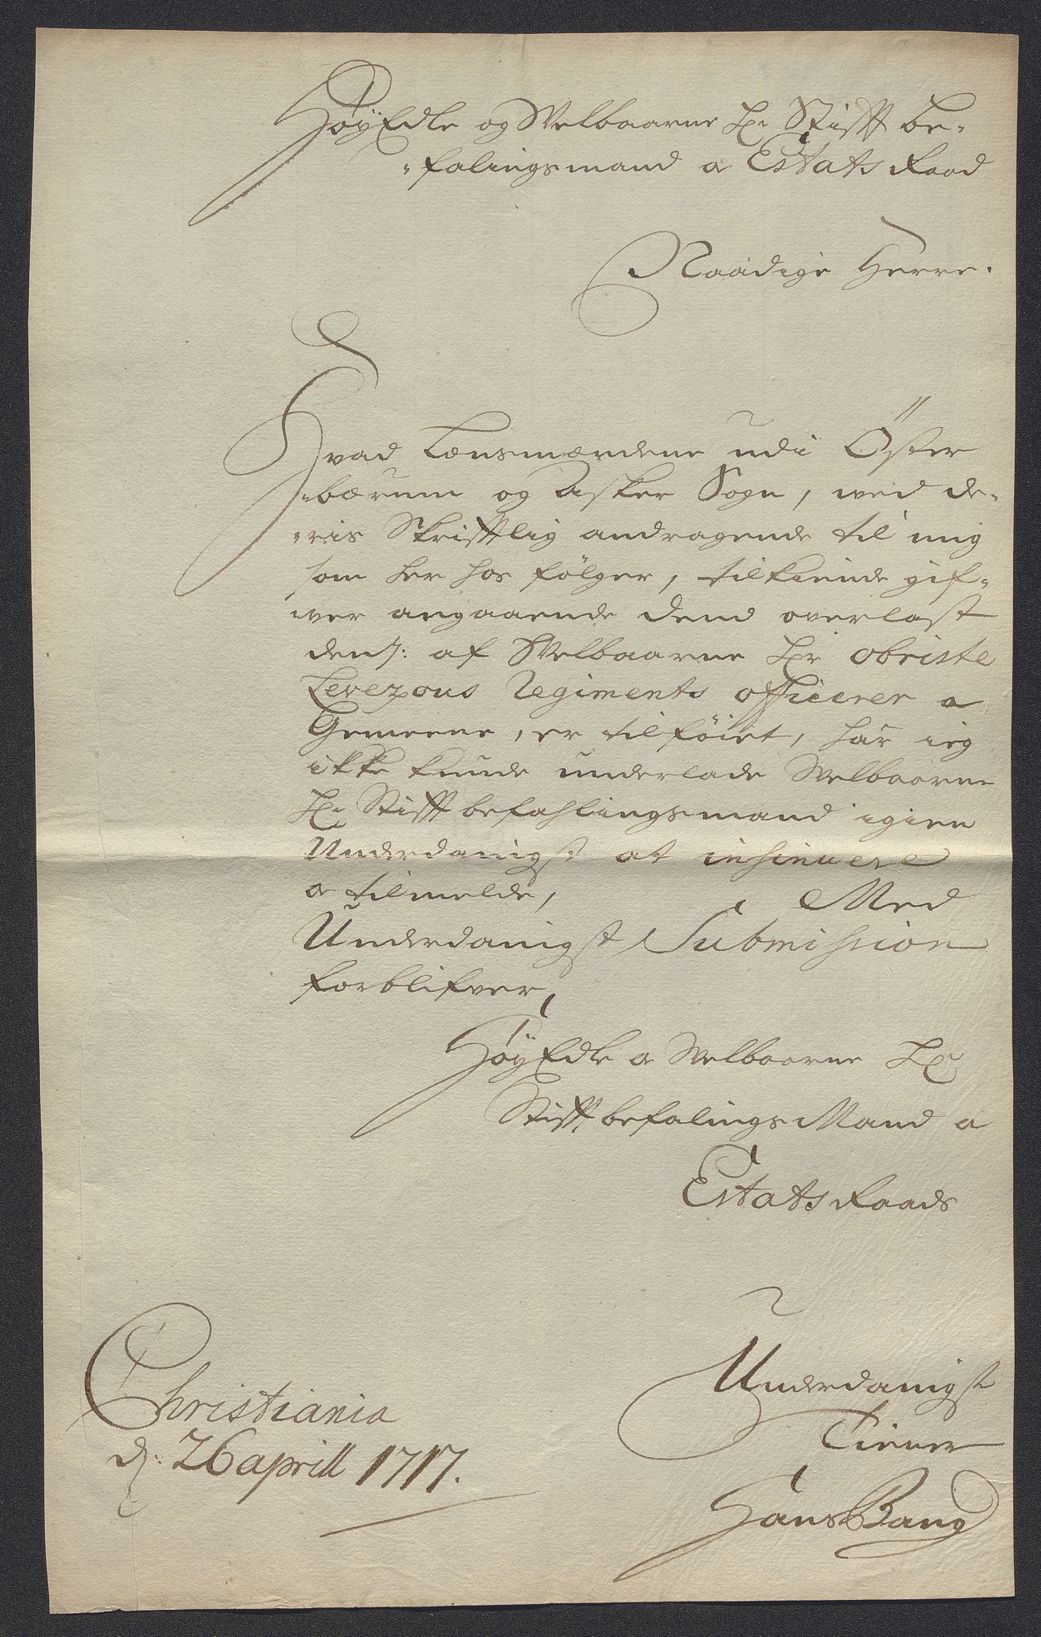 HöyEdle og Welbaarne Hr Stifft be-
-falingsmand o Estats Raad
Naadige Herre.
Hvad Lensmændene udi Öster
bærum og Asker Sogn, wed de-
-ris Skrifftlig andragende til mig
som her hos fölger, tilkiende gif-
wer angaaende dend overlast
dem: af Welbaarne Hr Obriste
Regiments officerer o
Gemeene, er tilföiet, har ieg
ikke kunde underlade Welbaarne
Hr Stifft befahlingsmand igien
Underdanigst at insinuere
o tilmelde, Med
Underdanigst Submission
forblifver,
HöyEdle o Welbaarne Hr
Stifft befalings Mand o
Estats Raads
Underdanigst
Tiener
Hans Bang
Christiania
d: 26 aprill 1717.